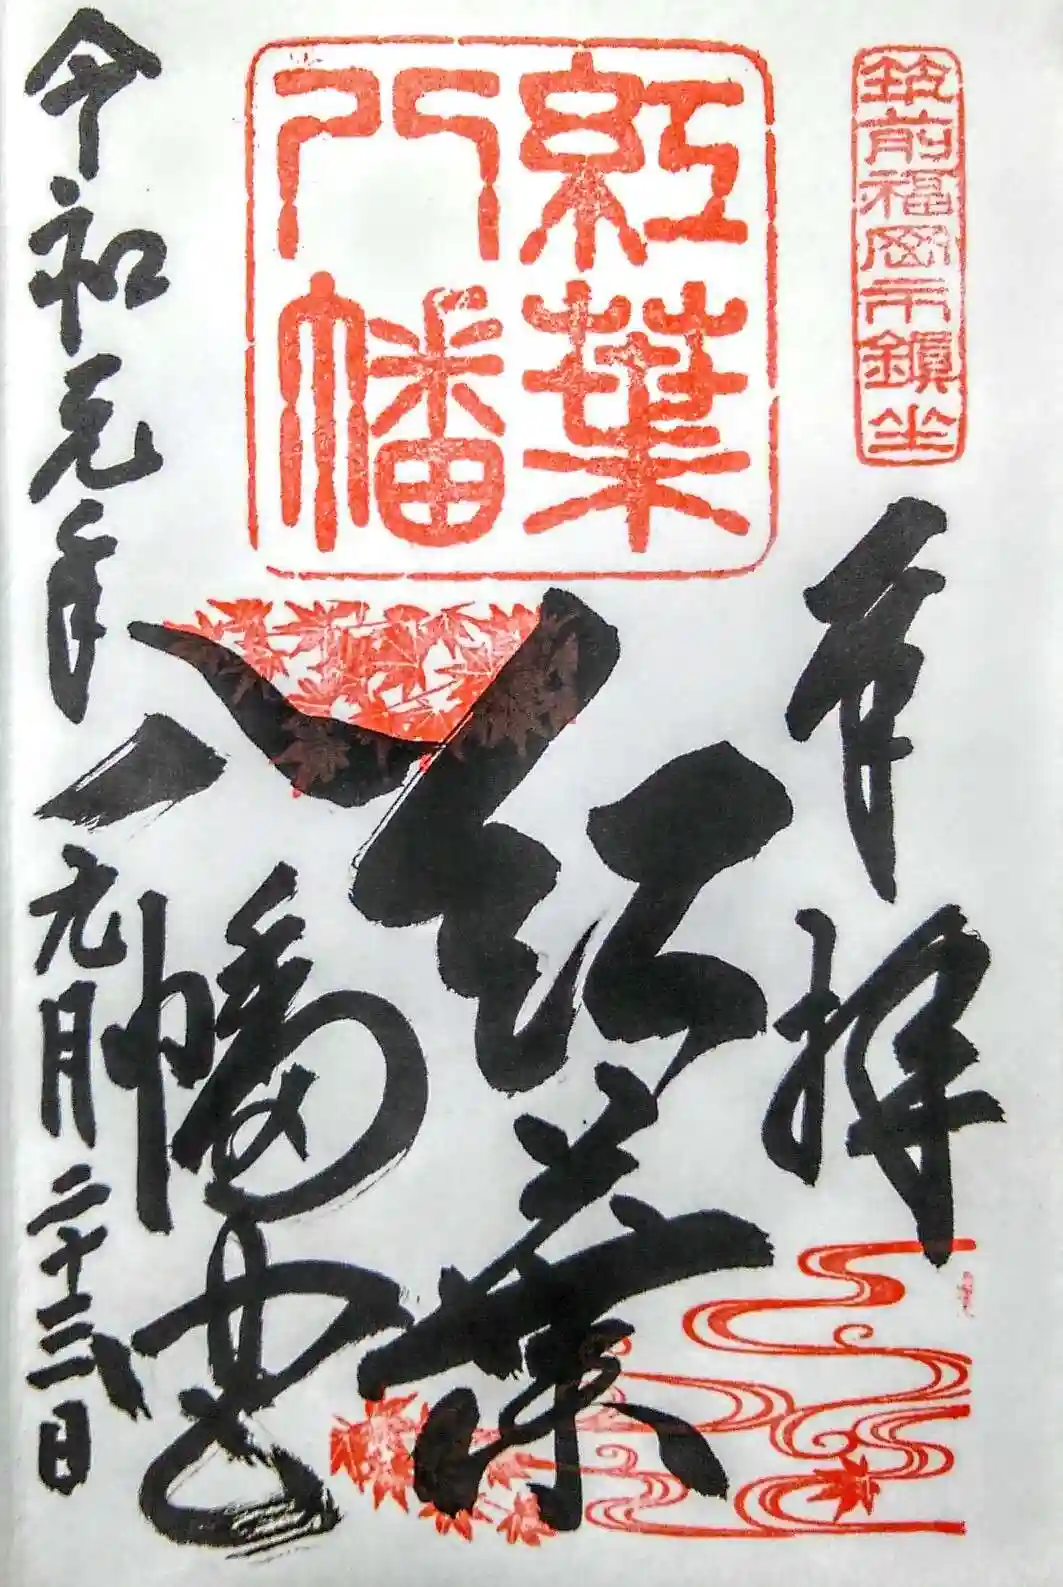 筑前福岡市鎭坐
奉拝
紅葉
八幡
紅葉
八幡宮
令和元年九月二十三日